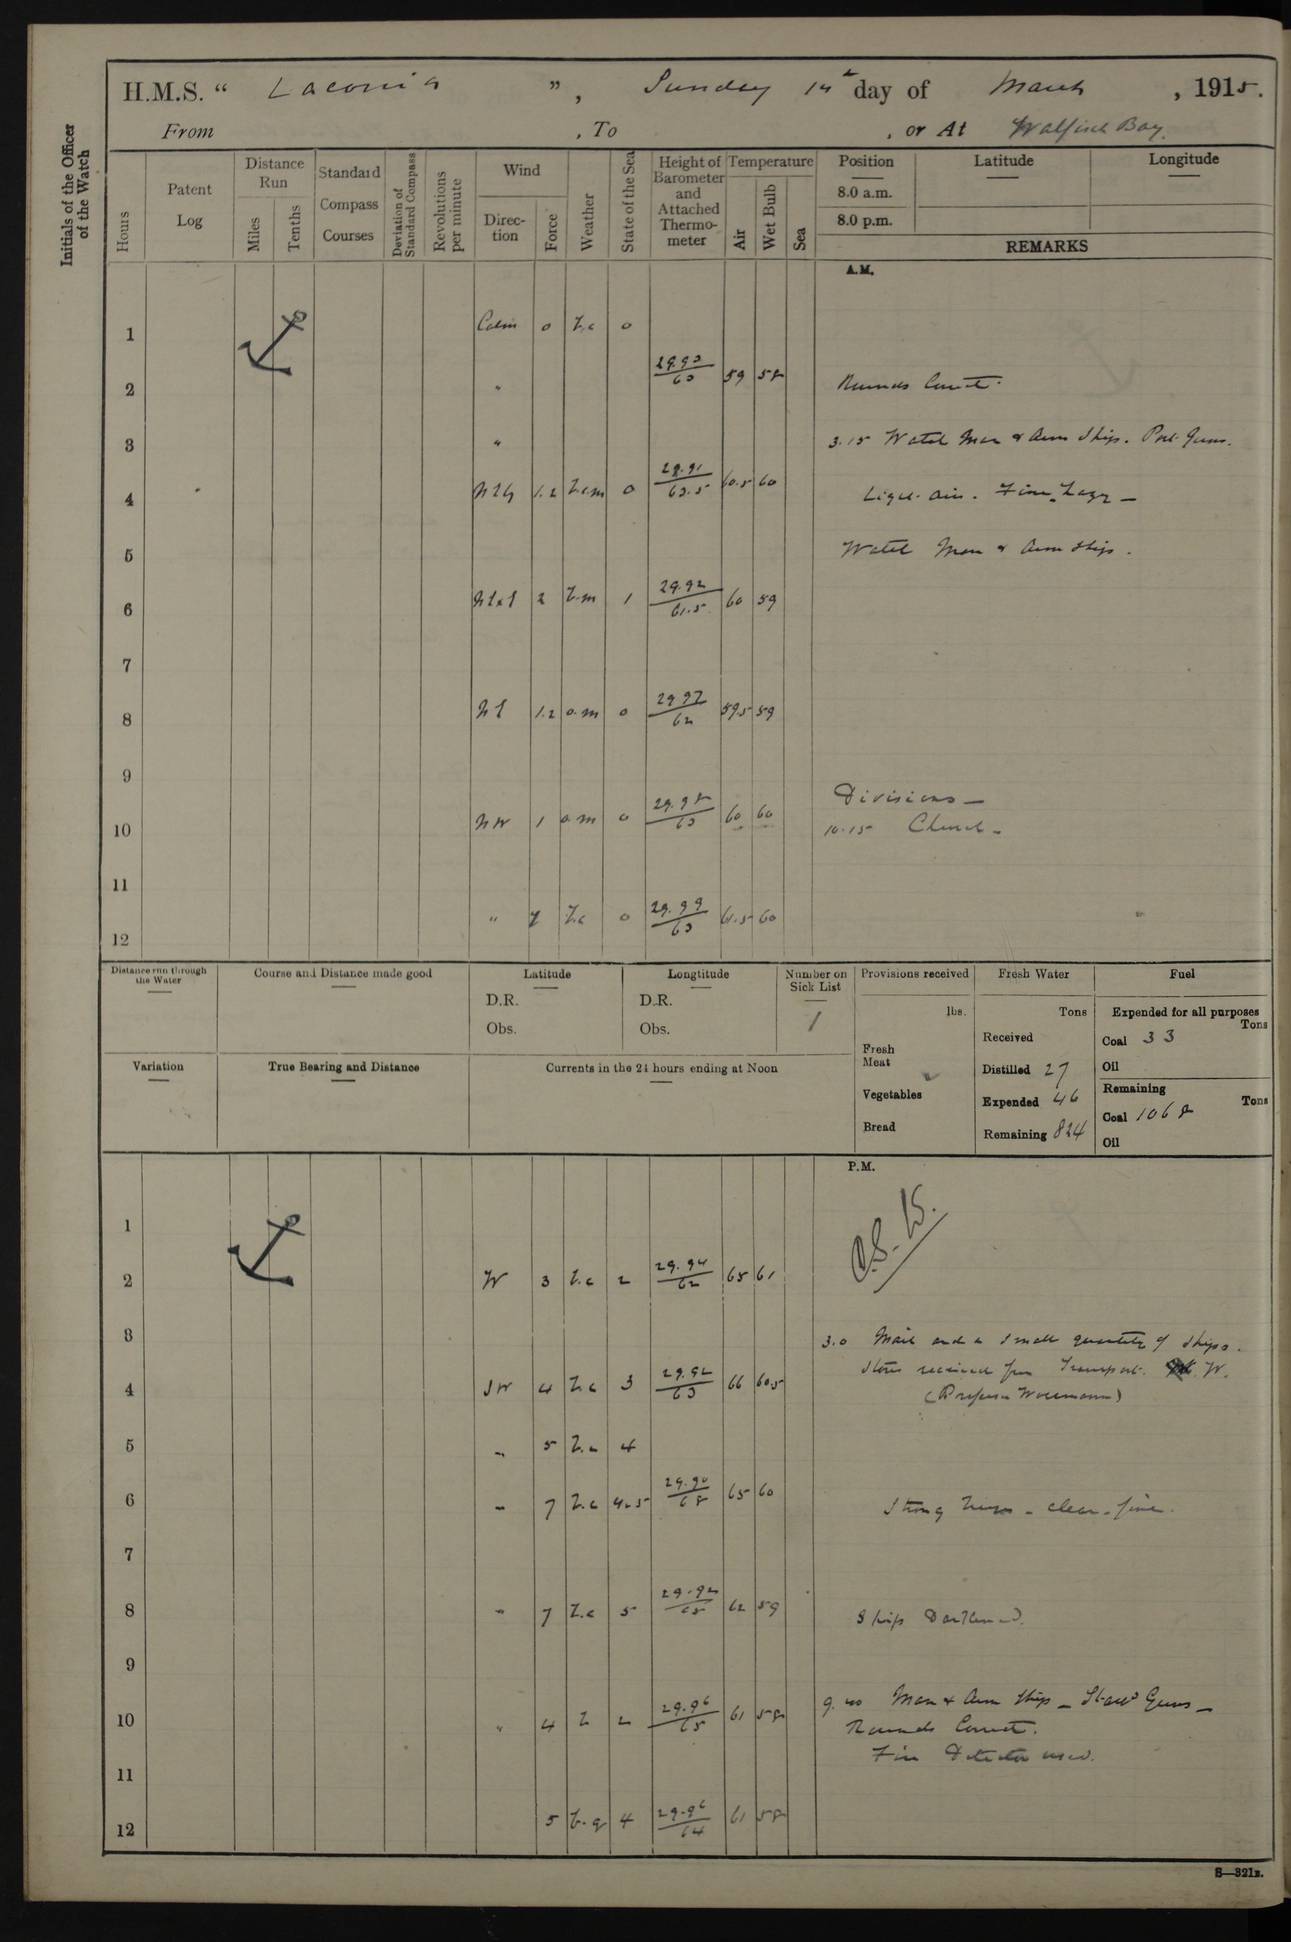 H.M.S. “ Laconia ”, Sunday 14th day of March, 1915.
From , To , or At Walfisch Bay.
Initials of the Officer of the Watch
Hours
Patent Log
Distance Run
Miles
Tenths
Standard Compass Courses
Deviation of Standard Compass
Revolutions per minute
Wind
Direction
Force
Weather
State of the Sea
Height of Barometer and Attached Thermometer
Temperature
Air
Wet Bulb
Sea
Position
Latitude
Longitude
8.0 a.m.
8.0 p.m.
REMARKS
A.M.
1 Calm 0 b.c 0
2 " 29.90/63 59 58 Rounds Correct.
3 " 3.15 Watch Man & Arm Ship. Port Guns.
4 1.2 b.c.m 0 29.91/63.5 60.5 60 Light airs. Fine, hazy —
5 Watch Man & Arm Ship.
6 2 b.m 1 29.92/61.5 60 59
7
8 1.2 o.m 0 29.97/62 59.5 59
9 Divisions —
10 NW 1 o m 0 29.98/63 60 60 10.15 Church -
11
12 " b.c 0 29.99/63 61.5 60
Distance run through the Water
Course and Distance made good
Latitude
D.R.
Obs.
Longtitude
D.R.
Obs.
Number on Sick List
1
Provisions received
lbs.
Fresh Meat
Vegetables
Bread
Fresh Water
Tons
Received
Distilled 27
Expended 46
Remaining 824
Fuel
Expended for all purposes
Tons
Coal 33
Oil
Remaining
Tons
Coal 1068
Oil
Variation
True Bearing and Distance
Currents in the 24 hours ending at Noon
P.M.
1
2 W 3 b.c 2 29.94/62 65 61
3 3.0 Mail and a small quantity of Ships.
4 SW 4 b.c 3 29.92/63 66 60.5 Stores received from Transport. W.
(Professor Woermann)
5 " 5 b.c 4
6 " 7 b.c 4.5 29.90/68 65 60 Strong - clear - fine.
7
8 " 7 b.c 5 29.92/65 62 59 Ship Darkened.
9
10 " 4 b 2 29.96/65 61 58 9.40 Man & Arm Ship — Starbd Guns —
Rounds Correct.
Fire Detector used.
11
12 5 b.q 4 29.96/64 61 58
S—321z.